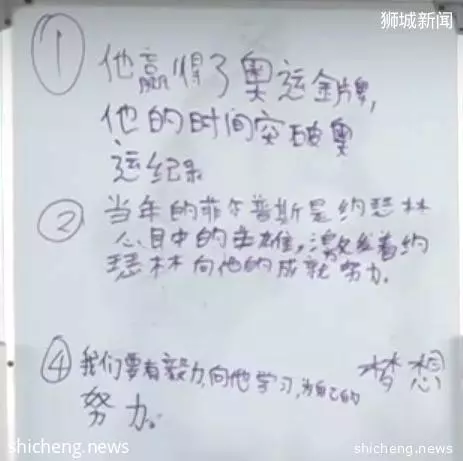 狮城新闻
① 他赢得了奥运金牌,
他的时间突破奥
运纪录
② 当年的菲尔普斯是约瑟林
心目中的英雄,激发着约
瑟林向他的成就努力.
④ 我们要有毅力,向他学习,为自己的 梦想
努力。
shicheng.news
shicheng.news